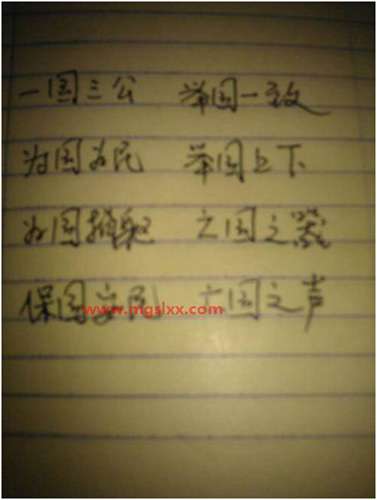 一国三公 举国一致
为国为民 举国上下
为国捐躯 国之器
保国安民 亡国之声
www.mgslxx.com